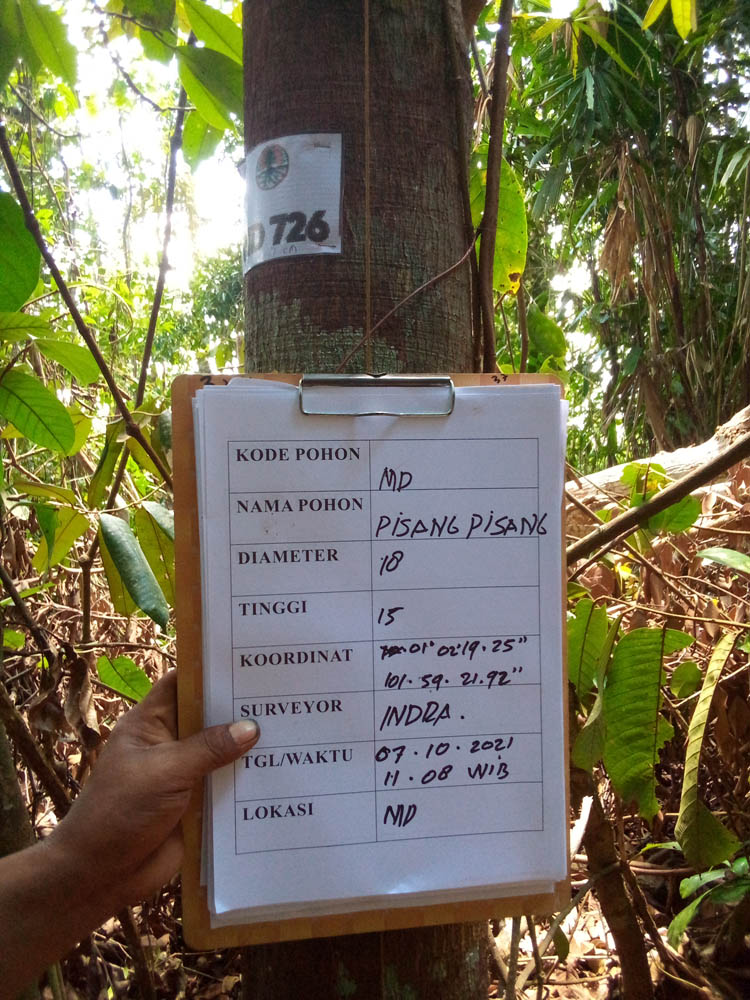 726
KODE POHON MD
NAMA POHON PISANG PISANG
DIAMETER 18
TINGGI 15
KOORDINAT 01° 02' 19.25"
101.59.21.92"
SURVEYOR INDRA.
TGL/WAKTU 07.10.2021
11.08 WIB
LOKASI MD